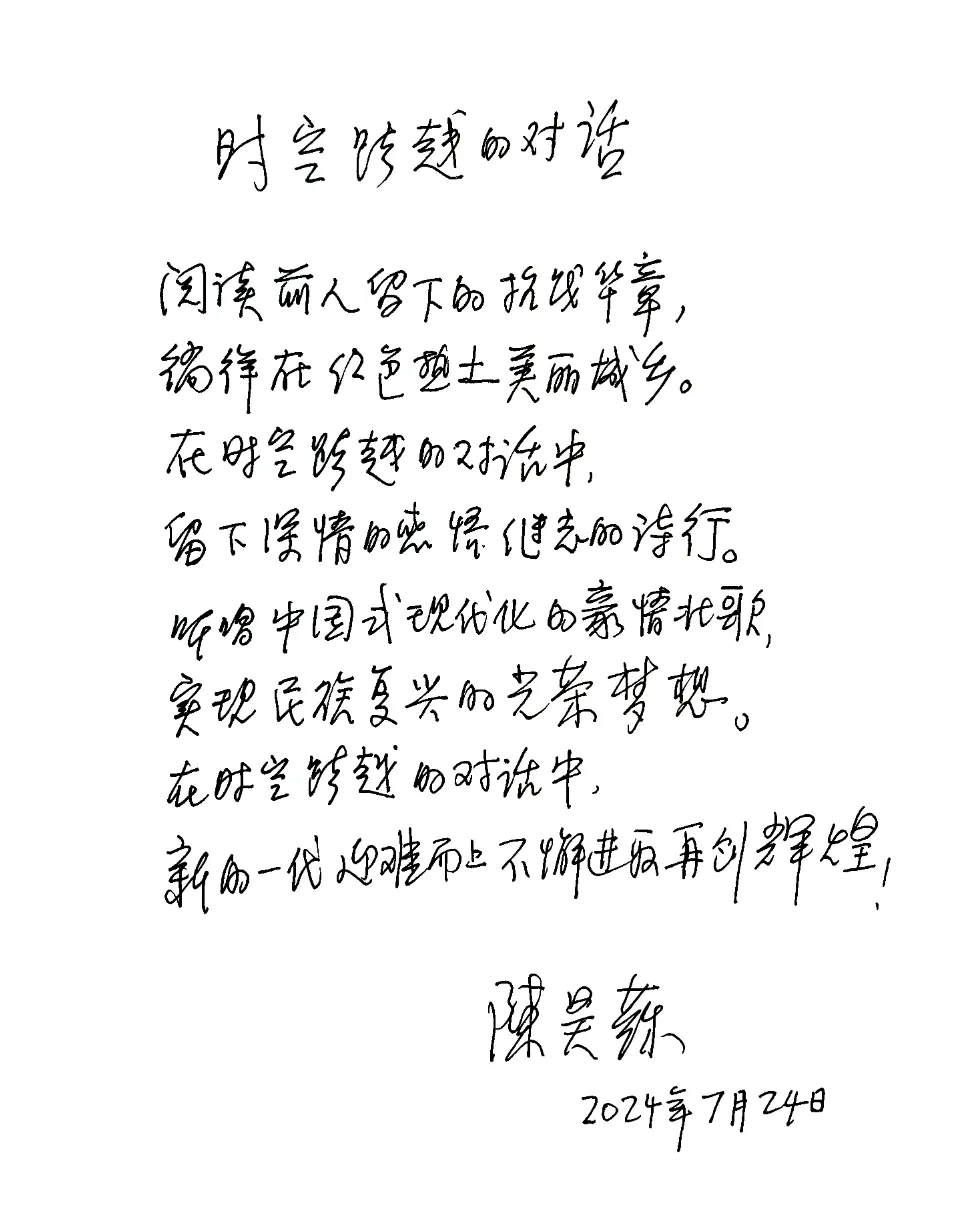 时空跨越的对话
阅读前人留下的抗战华章,
徜徉在红色热土美丽城乡。
在时空跨越的对话中,
留下深情的感悟继志的诗行。
听唱中国式现代化的豪情壮歌,
实现民族复兴的光荣梦想。
在时空跨越的对话中,
新的一代迎难而上不懈进取再创辉煌!
陈昊苏
2024年7月24日